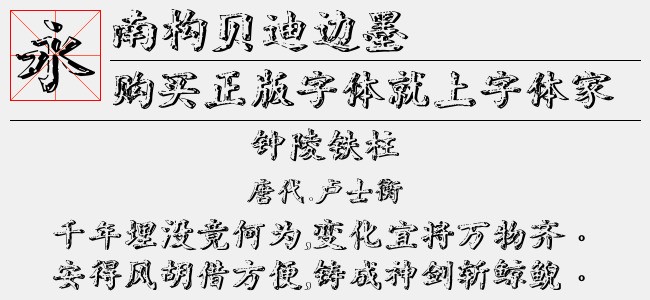 永
南构贝迪边墨
购买正版字体就上字体家
钟陵铁柱
唐代.卢士衡
千年埋没竟何为,变化宜将万物齐。
安得风胡借方便,铸成神剑斩鲸鲵。